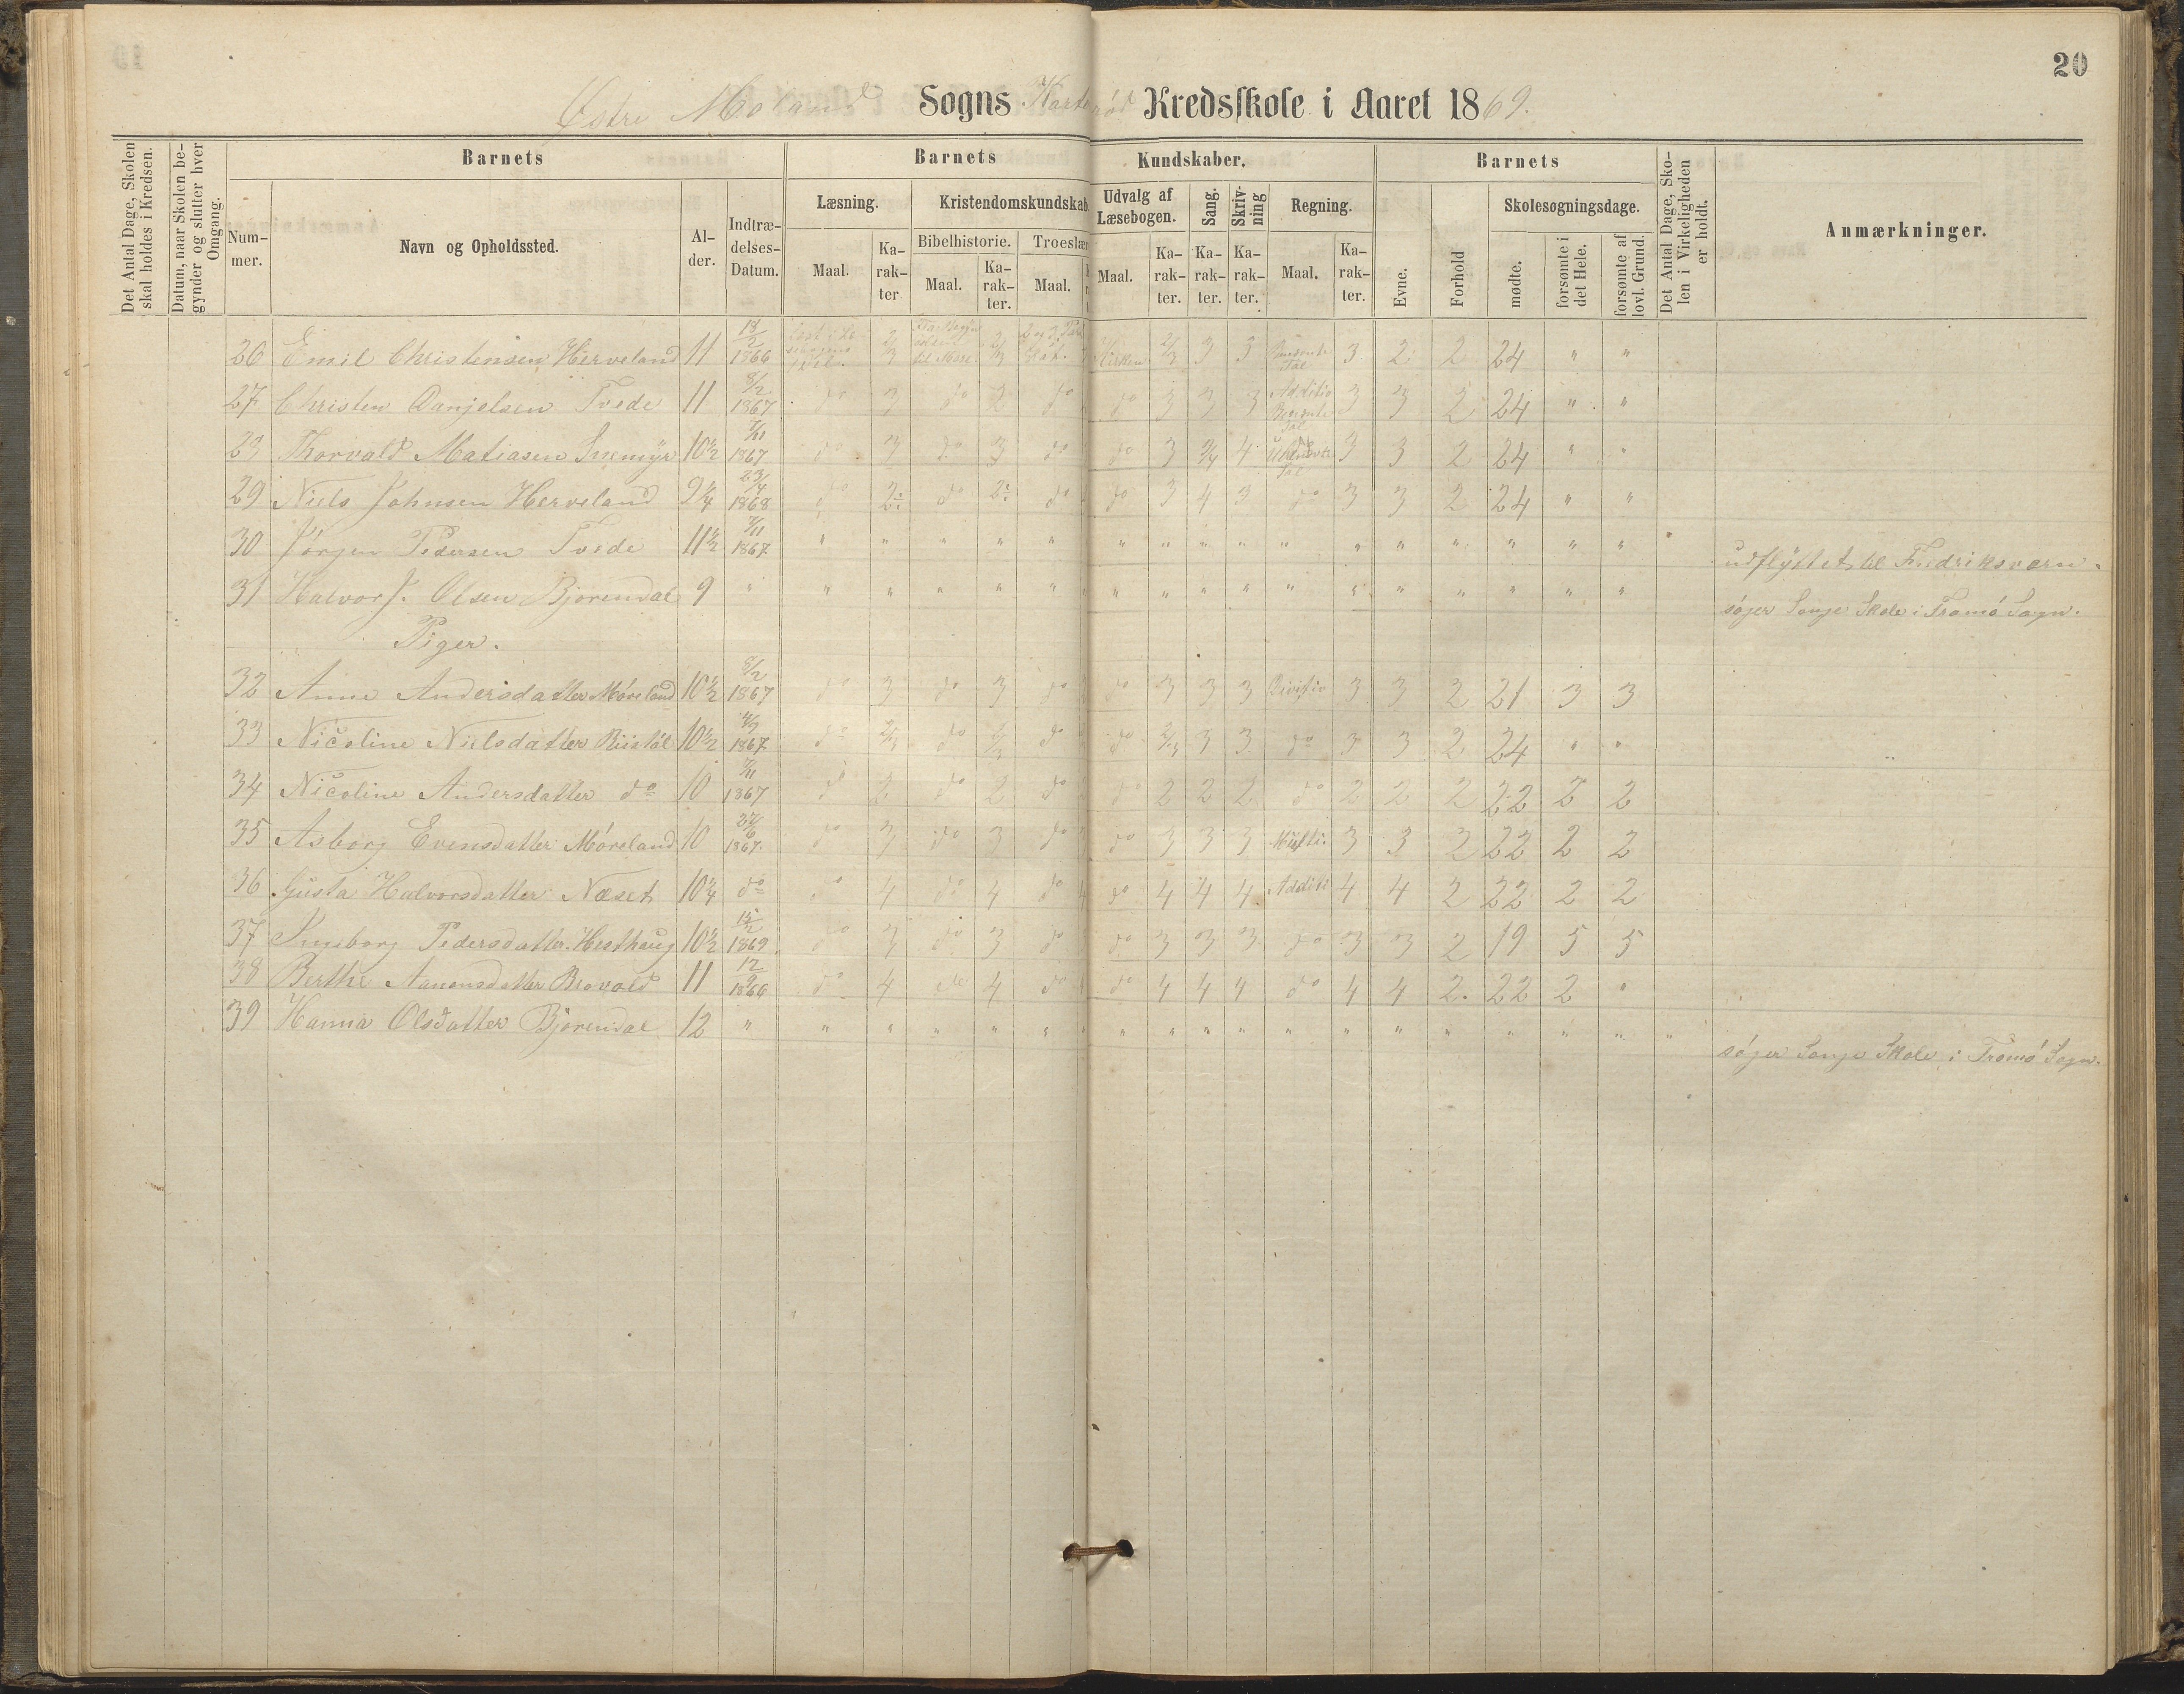 20
Østre Moland Sogns Kredsskole i Aaret 1869.
Det Antal Dage, Skolen skal holdes i Kredsen.
Datum, naar Skolen begynder og slutter hver Omgang.
Barnets
Barnets Kundskaber.
Barnets
Det Antal Dage, Skolen i Virkeligheden er holdt.
Anmærkninger.
Nummer.
Navn og Opholdssted.
Alder.
Indtrædelses-Datum.
Læsning.
Kristendomskundskab.
Udvalg af Læsebogen.
Sang.
Skrivning
Regning.
Evne.
Forhold
Skolesøgningsdage.
Bibelhistorie.
Troeslær
Maal. Karakter
Maal. Karakter. Maal.
Maal. Karakter. Karakter. Karakter. Maal. Karakter.
mødte. forsømte i det Hele. forsømte af lovl. Grund.
26 Emil Christensen Herveland 11 1866 3 3 3 2 2 24 " "
27 Christen Danjelsen Tvede 11 8/2 1867 do 3 do 2 do do 3 3 3 Additio 3 3 2 24 " "
Thorvald Matiasen 10½ 7/11 1867 do 3 do 3 do do 3 3/4 4 3 3 2 24 " "
29 Niels Johnsen Herveland 9¼ 23/4 1868 do do do do 3 4 3 do 3 3 2 24 " "
30 Jörgen Pedersen Tvede 11½ 7/11 1867 " " " " " " " " " " " " " " " " udflyttet til Fredriksværn.
31 Halvor J. Olsen Bjorendal 9 " " " " " " " " " " " " " " " " " søger Songe Skole i Tromø Sogn.
Piger.
32 Anne Andersdatter Möreland 10½ 8/2 1867 do 3 do 3 do do 3 3 3 Divisio 3 3 2 21 3 3
33 Nicoline Nielsdatter 10½ 1867 do 2/3 do 2/3 do do 2/3 3 3 do 3 3 2 24 " "
34 Nicoline Andersdatter do 10 7/11 1867 do 2 do 2 do do 2 2 2 do 2 2 2 22 2 2
35 Asborg Evensdatter Möreland 10 27/6 1867. do 3 do 3 do do 3 3 3 Multi. 3 3 2 22 2 2
36 Gusta Halvorsdatter Næset 10¼ do do 4 do 4 do 4 do 4 4 4 Additi 4 4 2 22 2 2
37 Pedersdatter Hesthaug 10½ 1869 do 3 do 3 do do 3 3 3 do 3 3 2 19 5 5
38 Berthe 11 12/9 1866 do 4 do 4 do do 4 4 4 do 4 4 2. 22 2 "
39 Hanna Olsdatter Bjorendal 12 " " " " " " " " " " " " " " " " " " søger Songe Skole i Tromø Sogn.